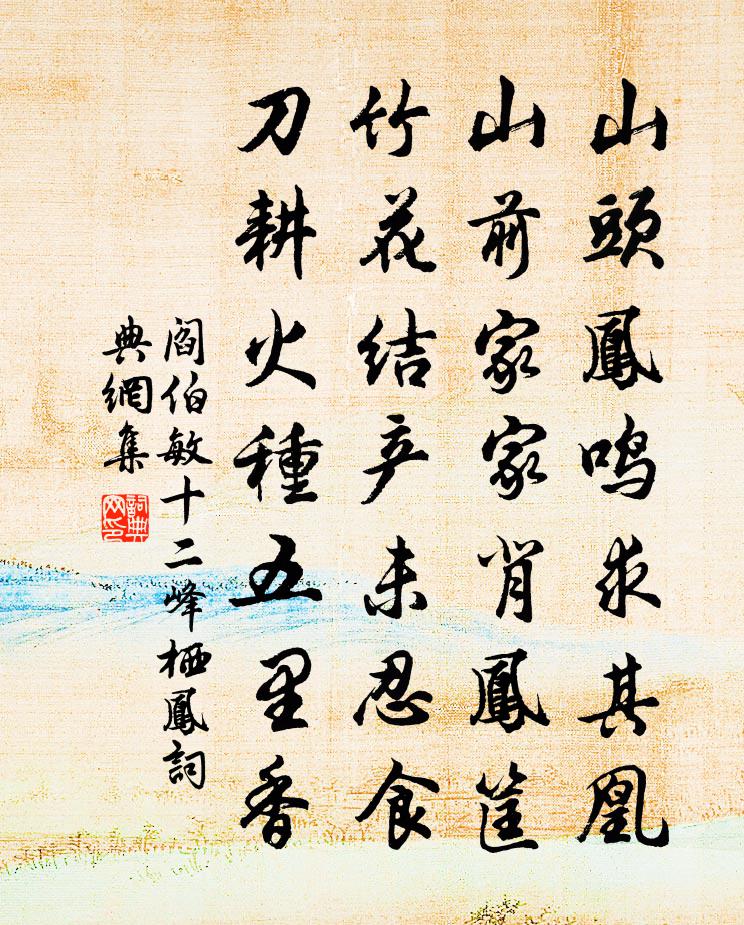 山頭鳳鳴求其凰
山前家家肖鳳筐
竹花结产未忍食
刀耕火種五里香
閻伯敏十二峰栖鳳詞
典網集
詞典網印